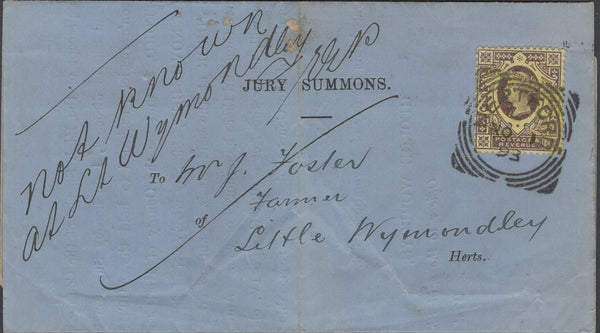 not known
at Lt Wymondley
JURY SUMMONS.
To Mr J. Foster
of Farmer
Little Wymondley
Herts.
POSTAGE &
REVENUE
93